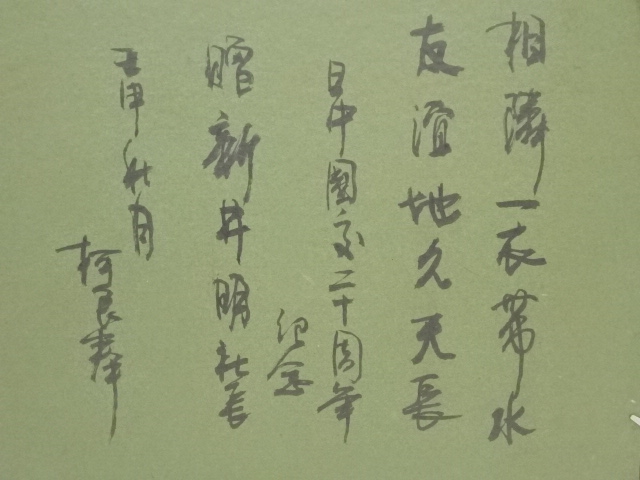 相隣一衣帯水
友誼地久天長
日中國交二十周年
紀念
贈新井明社長
壬申秋月
柯良